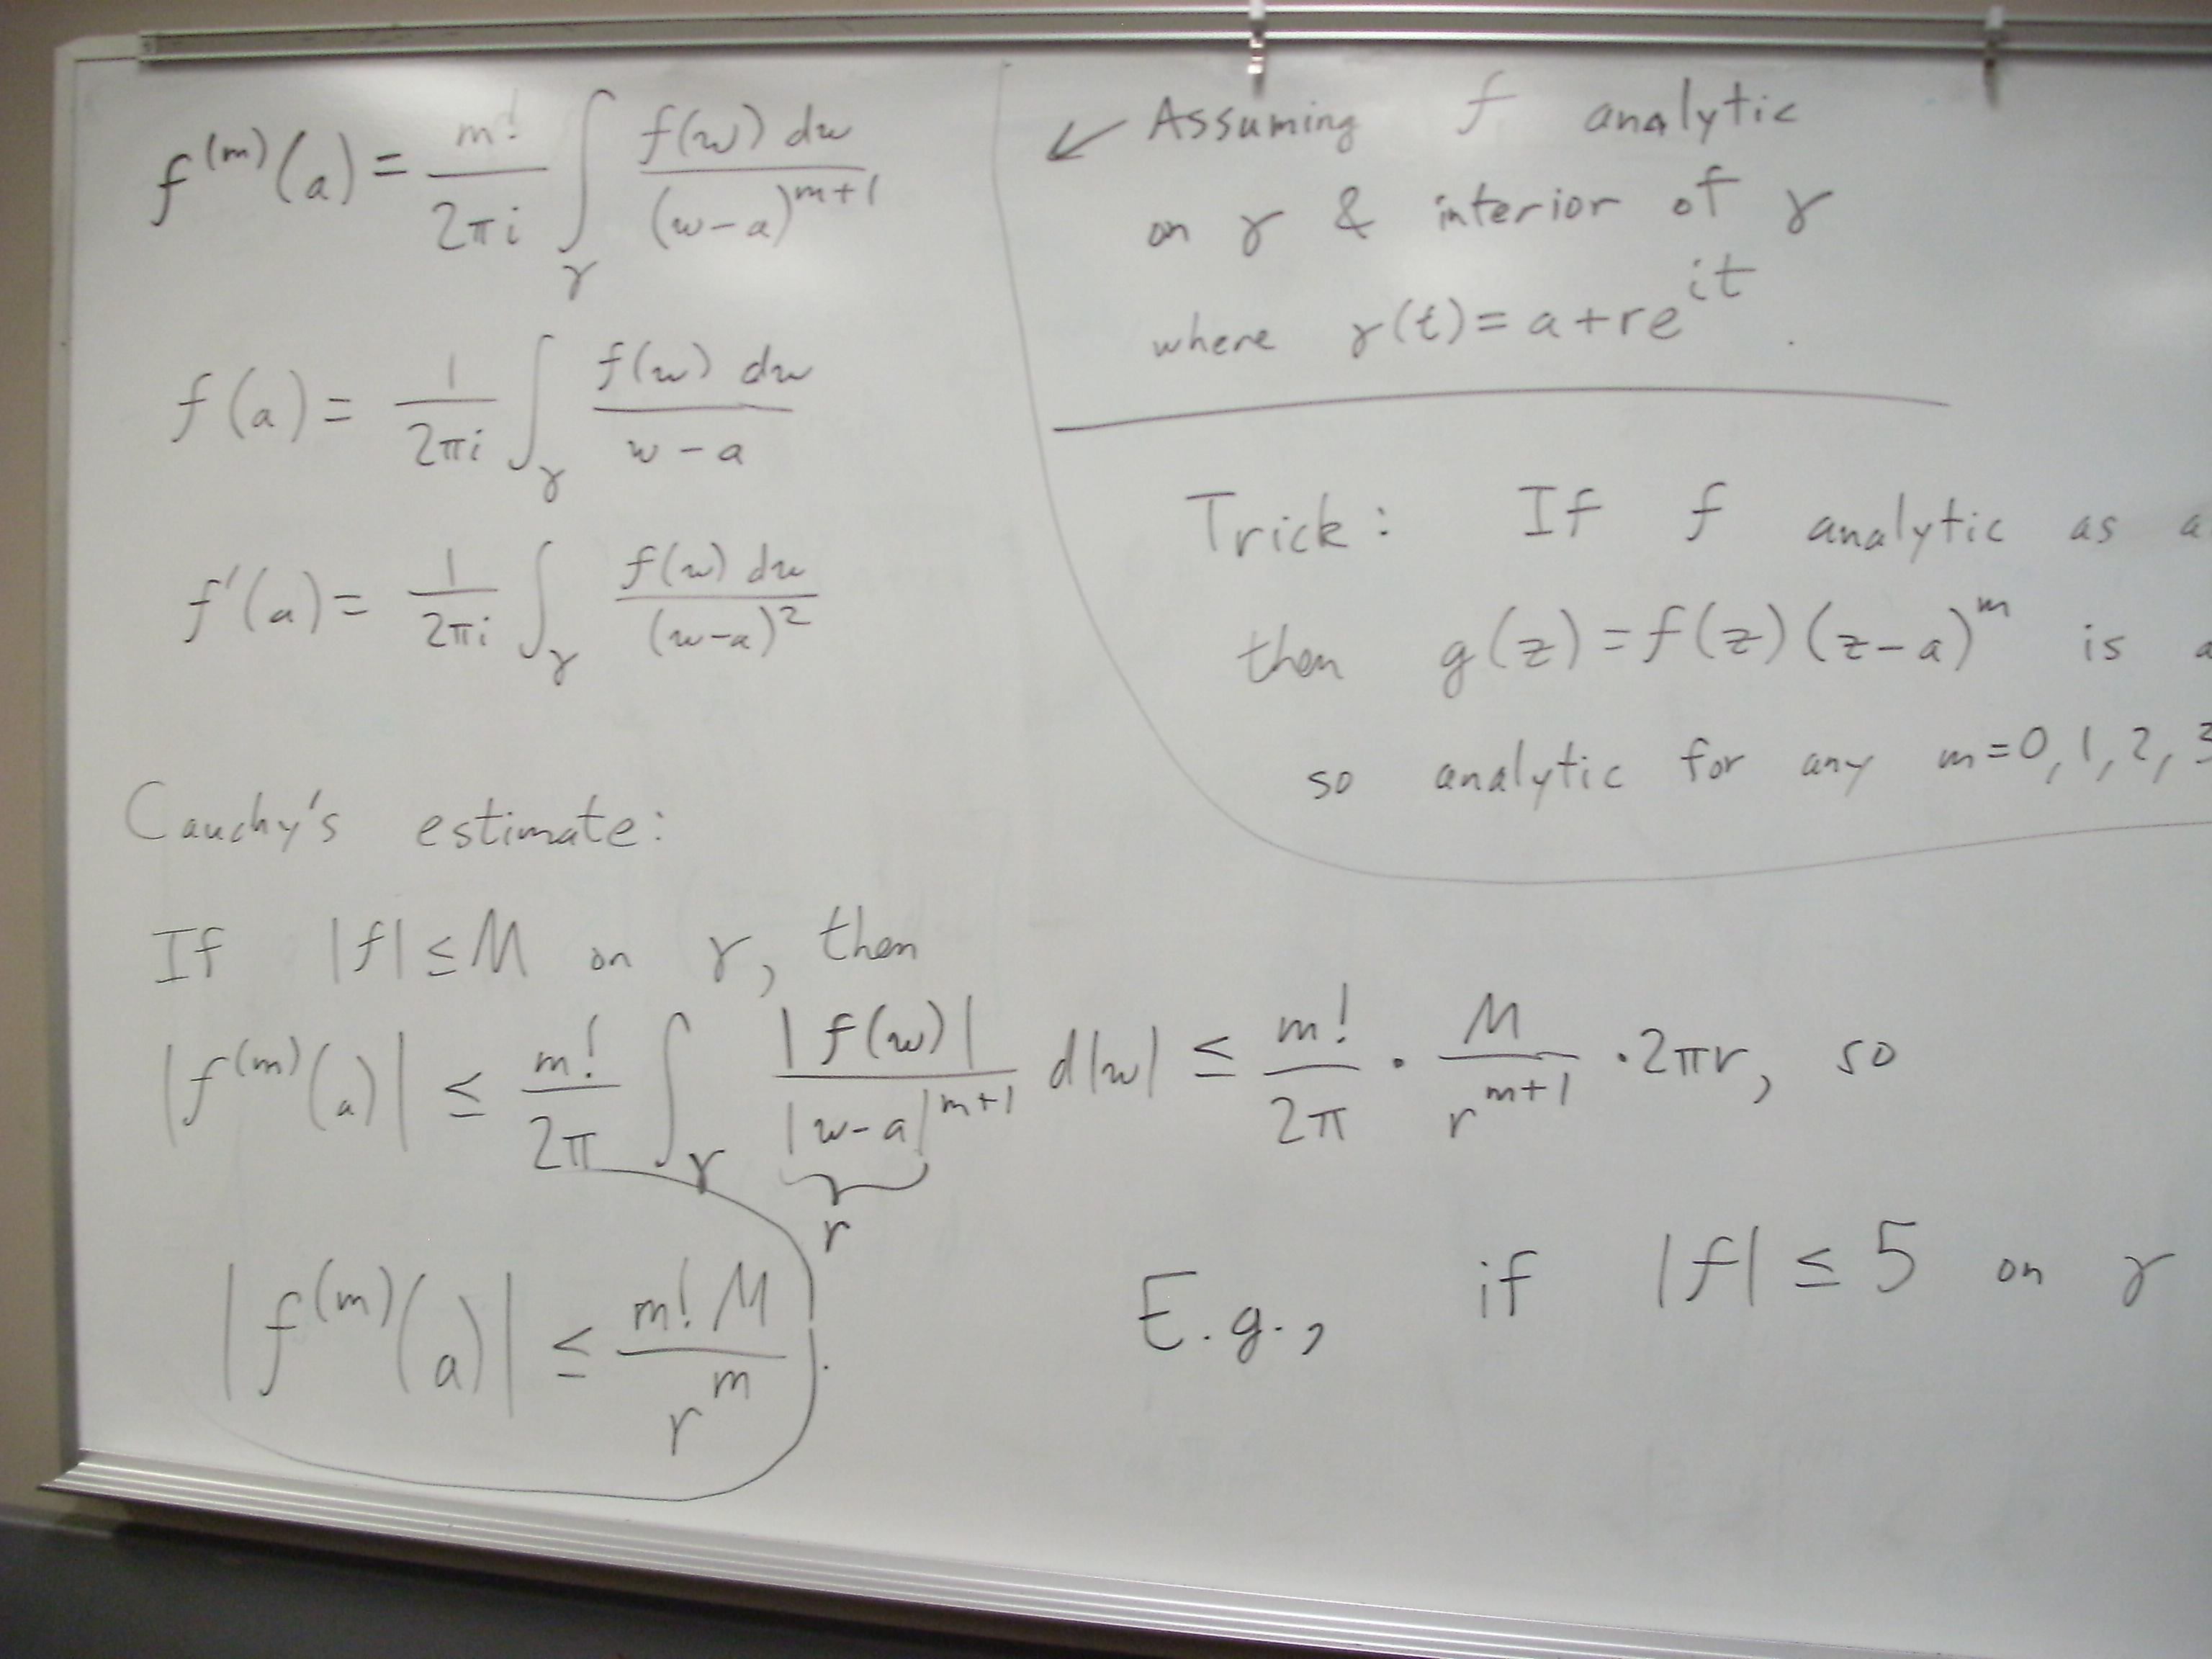 f^(m)(a) = m!/(2πi) ∫_γ f(w) dw/(w−a)^(m+1)
f(a) = 1/(2πi) ∫_γ f(w) dw/(w−a)
f'(a) = 1/(2πi) ∫_γ f(w) dw/(w−a)^2
↙ Assuming f analytic
on γ & interior of γ
where γ(t) = a + re^(it).
Trick: If f analytic as
then g(z) = f(z)(z−a)^m is
so analytic for any m=0, 1, 2, 3
Cauchy's estimate:
If |f| ≤ M on γ, then
|f^(m)(a)| ≤ m!/(2π) ∫_γ |f(w)|/|w−a|^(m+1) d|w| ≤ m!/(2π) · M/r^(m+1) · 2πr, so
r
|f^(m)(a)| ≤ m! M/r^m.
E.g., if |f| ≤ 5 on γ